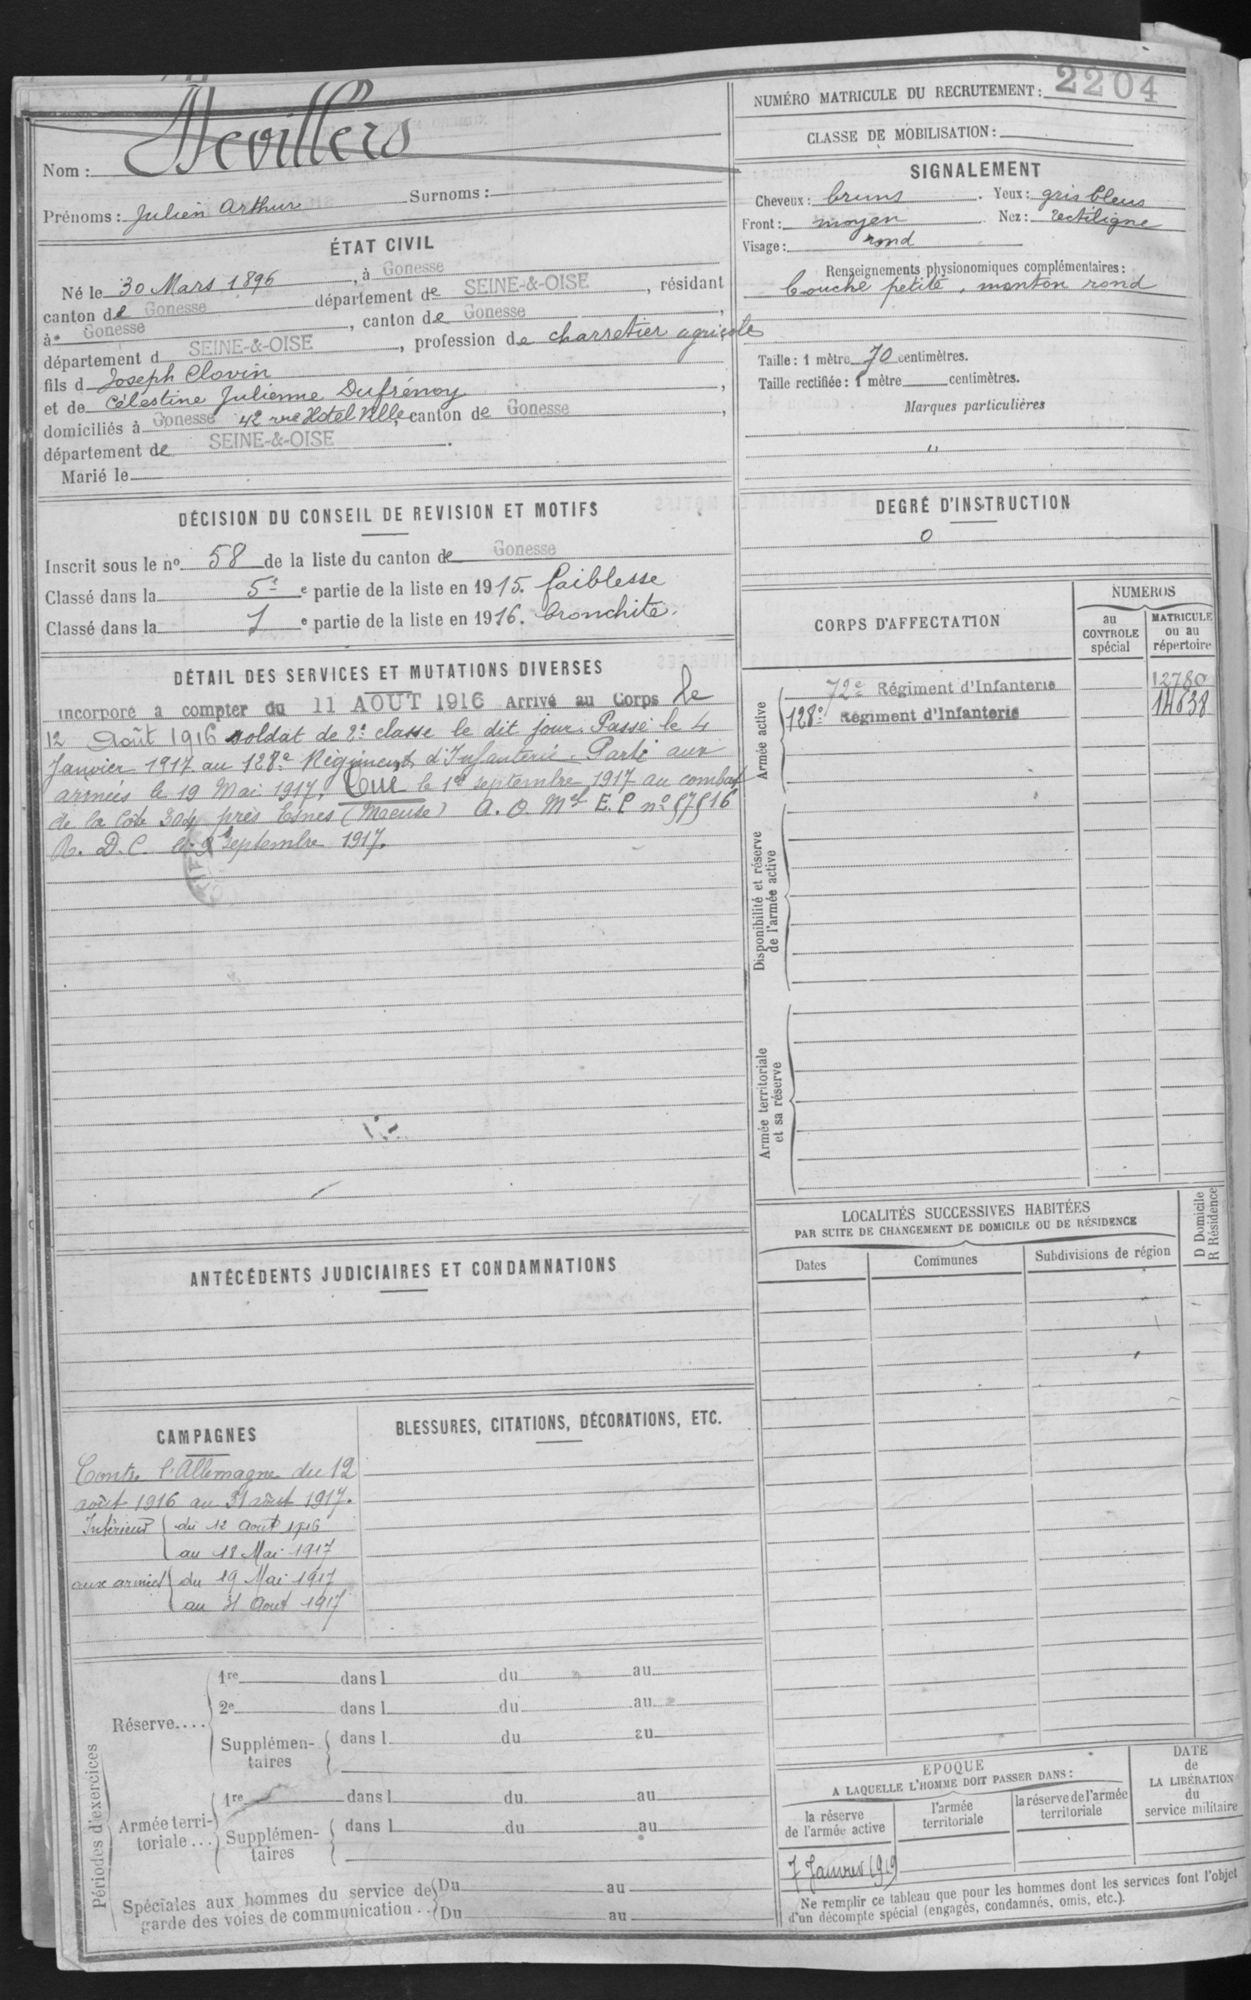 Nom : Devillers
Prénoms : Julien Arthur Surnoms :
ÉTAT CIVIL
Né le 30 Mars 1896, à Gonesse
canton de Gonesse département de SEINE-&-OISE, résidant
à Gonesse, canton de Gonesse,
département d SEINE-&-OISE, profession de charretier agricole
fils d Joseph Clovin
et de Célestine Julienne Dufrénoy,
domiciliés à Gonesse 42 rue Hotel Ville, canton de Gonesse,
département de SEINE-&-OISE.
Marié le
DÉCISION DU CONSEIL DE REVISION ET MOTIFS
Inscrit sous le nº 58 de la liste du canton de Gonesse
Classé dans la 5e e partie de la liste en 1915. faiblesse
Classé dans la 1 e partie de la liste en 1916. bronchite.
DÉTAIL DES SERVICES ET MUTATIONS DIVERSES
Incorporé à compter du 11 AOUT 1916 Arrivé au Corps le
12 Août 1916 soldat de 2e classe le dit jour. Passé le 4
Janvier 1917 au 128e Régiment d'Infanterie. Parti aux
armées le 19 Mai 1917. Tué le 1er septembre 1917 au combat
de la Côte 304 près Esnes (Meuse) A. O. Mel E. P nº 57516
R. D. C. le septembre 1917.
ANTÉCÉDENTS JUDICIAIRES ET CONDAMNATIONS
CAMPAGNES
Contre l'Allemagne du 12
août 1916 au 31 août 1917.
Intérieur du 12 Aout 1916
au 18 Mai 1917
aux armées du 19 Mai 1917
au 31 Aout 1917
BLESSURES, CITATIONS, DÉCORATIONS, ETC.
Périodes d'exercices
Réserve....
1re dans l du au
2e dans l du au
Supplémen-
taires
dans l du au
Armée terri-
toriale ...
1re dans l du au
Supplémen-
taires
dans l du au
Spéciales aux hommes du service de
garde des voies de communication ..
Du au
Du au
NUMÉRO MATRICULE DU RECRUTEMENT : 2204
CLASSE DE MOBILISATION :
SIGNALEMENT
Cheveux : bruns. Yeux : gris bleus
Front : moyen. Nez : rectiligne
Visage : rond
Renseignements physionomiques complémentaires :
bouche petite, menton rond
Taille : 1 mètre 70 centimètres.
Taille rectifiée : 1 mètre centimètres.
Marques particulières
"
DEGRÉ D'INSTRUCTION
0
CORPS D'AFFECTATION
NUMEROS
au
CONTROLE
spécial
MATRICULE
ou au
répertoire
Armée active
72e Régiment d'Infanterie 12780
128e Régiment d'Infanterie 14638
Disponibilité et réserve
de l'armée active
Armée territoriale
et sa réserve
LOCALITÉS SUCCESSIVES HABITÉES
PAR SUITE DE CHANGEMENT DE DOMICILE OU DE RÉSIDENCE
D Domicile
R Résidence
Dates Communes Subdivisions de région
EPOQUE
A LAQUELLE L'HOMME DOIT PASSER DANS :
la réserve
de l'armée active
l'armée
territoriale
la réserve de l'armée
territoriale
DATE
de
LA LIBÉRATION
du
service militaire
7 Janvier 1919
Ne remplir ce tableau que pour les hommes dont les services font l'objet
d'un décompte spécial (engagés, condamnés, omis, etc.).